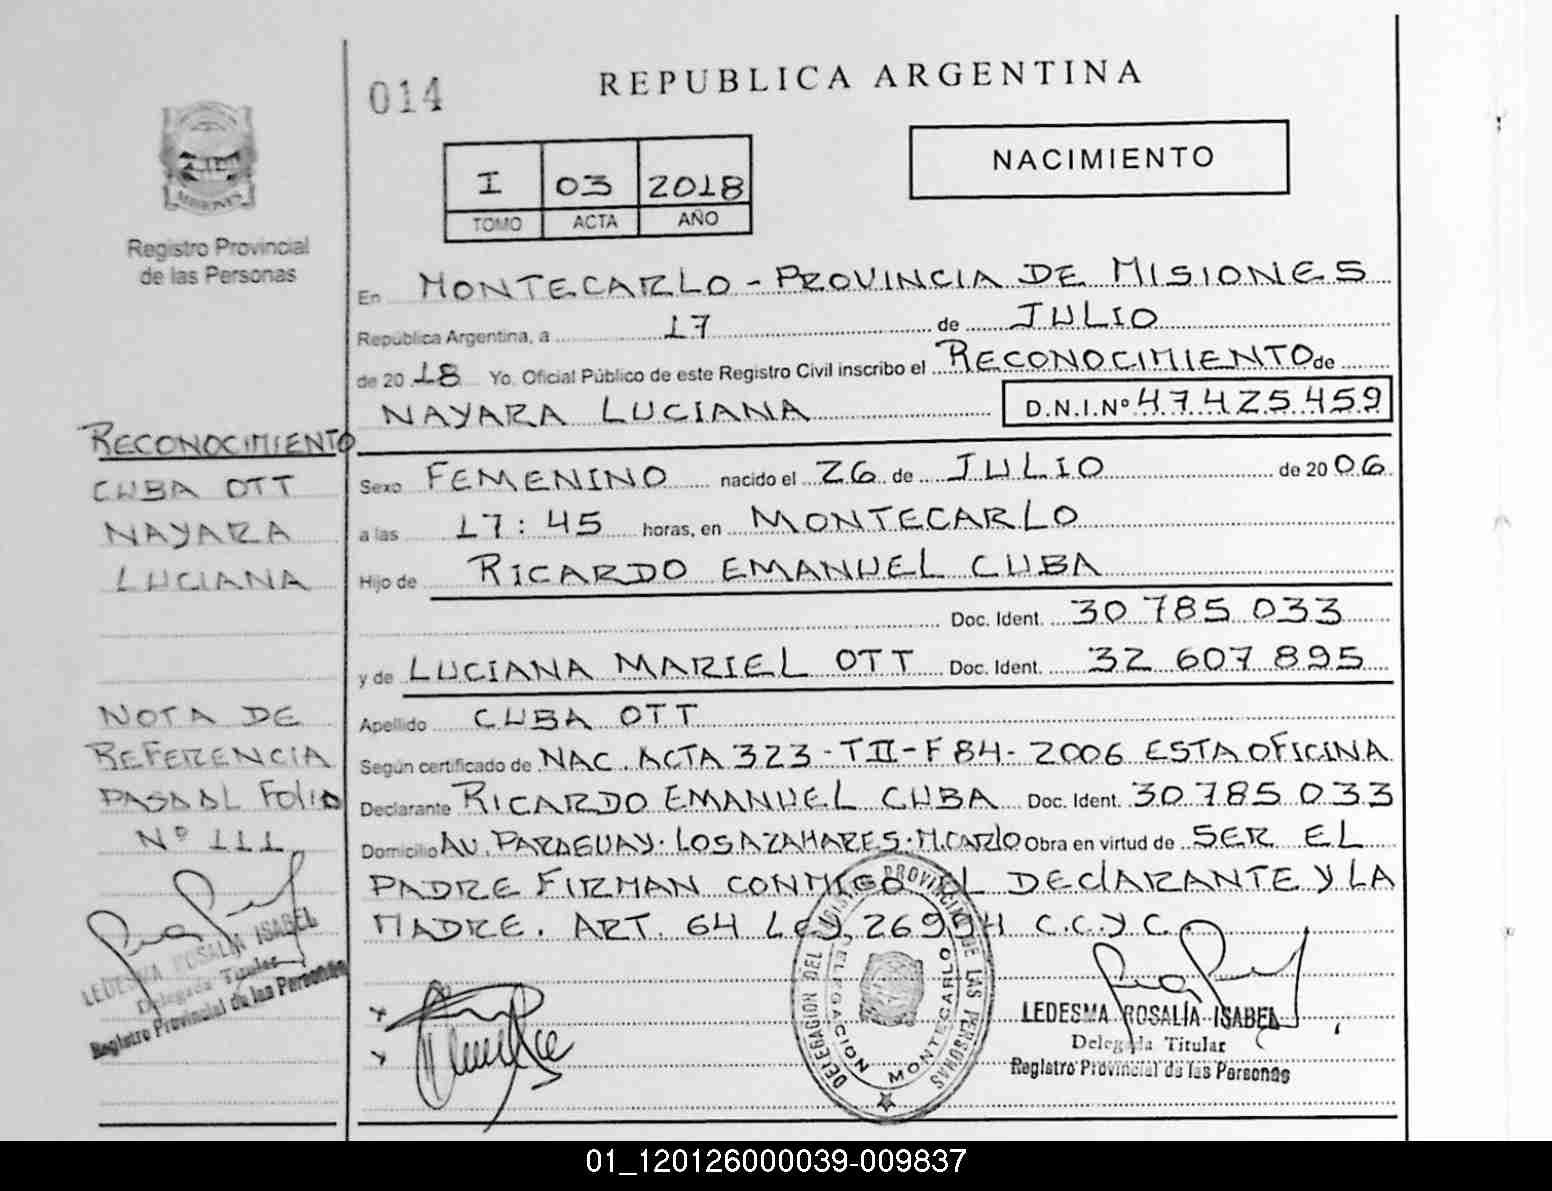 014
REPUBLICA ARGENTINA
MISIONES
Registro Provincial
de las Personas
I 03 2018
TOMO ACTA AÑO
NACIMIENTO
En MONTECARLO - PROVINCIA DE MISIONES
República Argentina, a 17 de JULIO
de 20 18 Yo. Oficial Público de este Registro Civil inscribo el RECONOCIMIENTO de
NAYARA LUCIANA D.N.I.Nº 47.425.459
Sexo FEMENINO nacido el 26 de JULIO de 20 06
a las 17:45 horas, en MONTECARLO
Hijo de RICARDO EMANUEL CUBA
Doc. Ident. 30 785 033
y de LUCIANA MARIEL OTT Doc. Ident. 32 607 895
Apellido CUBA OTT
Según certificado de NAC. ACTA 323 - T II - F 84 - 2006 ESTA OFICINA
Declarante RICARDO EMANUEL CUBA Doc. Ident. 30 785 033
Domicilio AV. PARAGUAY. LOS AZAHARES. M.CARLO Obra en virtud de SER EL
PADRE FIRMAN CONMIGO EL DEClARANTE Y LA
MADRE. ART. 64 LEY 26994 C.C.y C.
RECONOCIMIENTO
CUBA OTT
NAYARA
LUCIANA
NOTA DE
REFERENCIA
PASA AL FOLIO
Nº 111
LEDESMA ROSALIA ISABEL
Delegada Titular
Registro Provincial de las Personas
DELEGACION DEL REGISTRO PROVINCIAL DE LAS PERSONAS
DELEGACION MONTECARLO
LEDESMA ROSALÍA ISABEL
Delegada Titular
Registro Provincial de las Personas
01_120126000039-009837